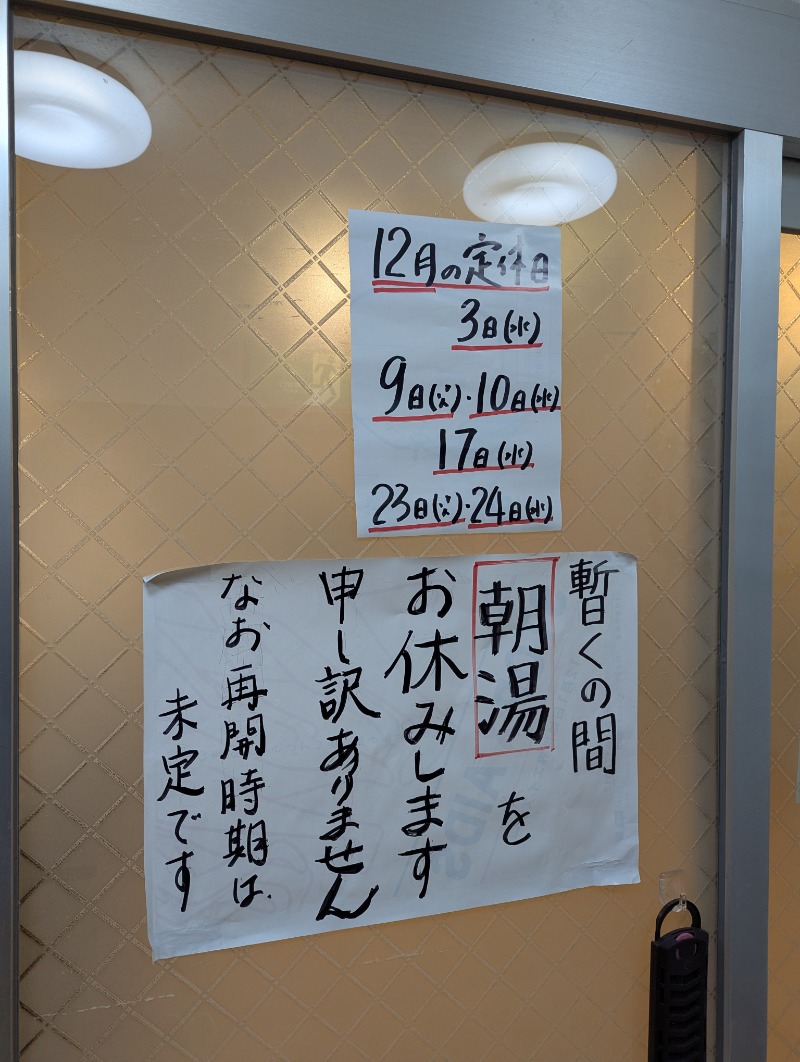 12月の定休日
3日(水)
9日(火)・10日(水)
17日(水)
23日(火)・24日(水)
暫くの間
朝湯を
お休みします
申し訳ありません
なお再開時期は、
未定です